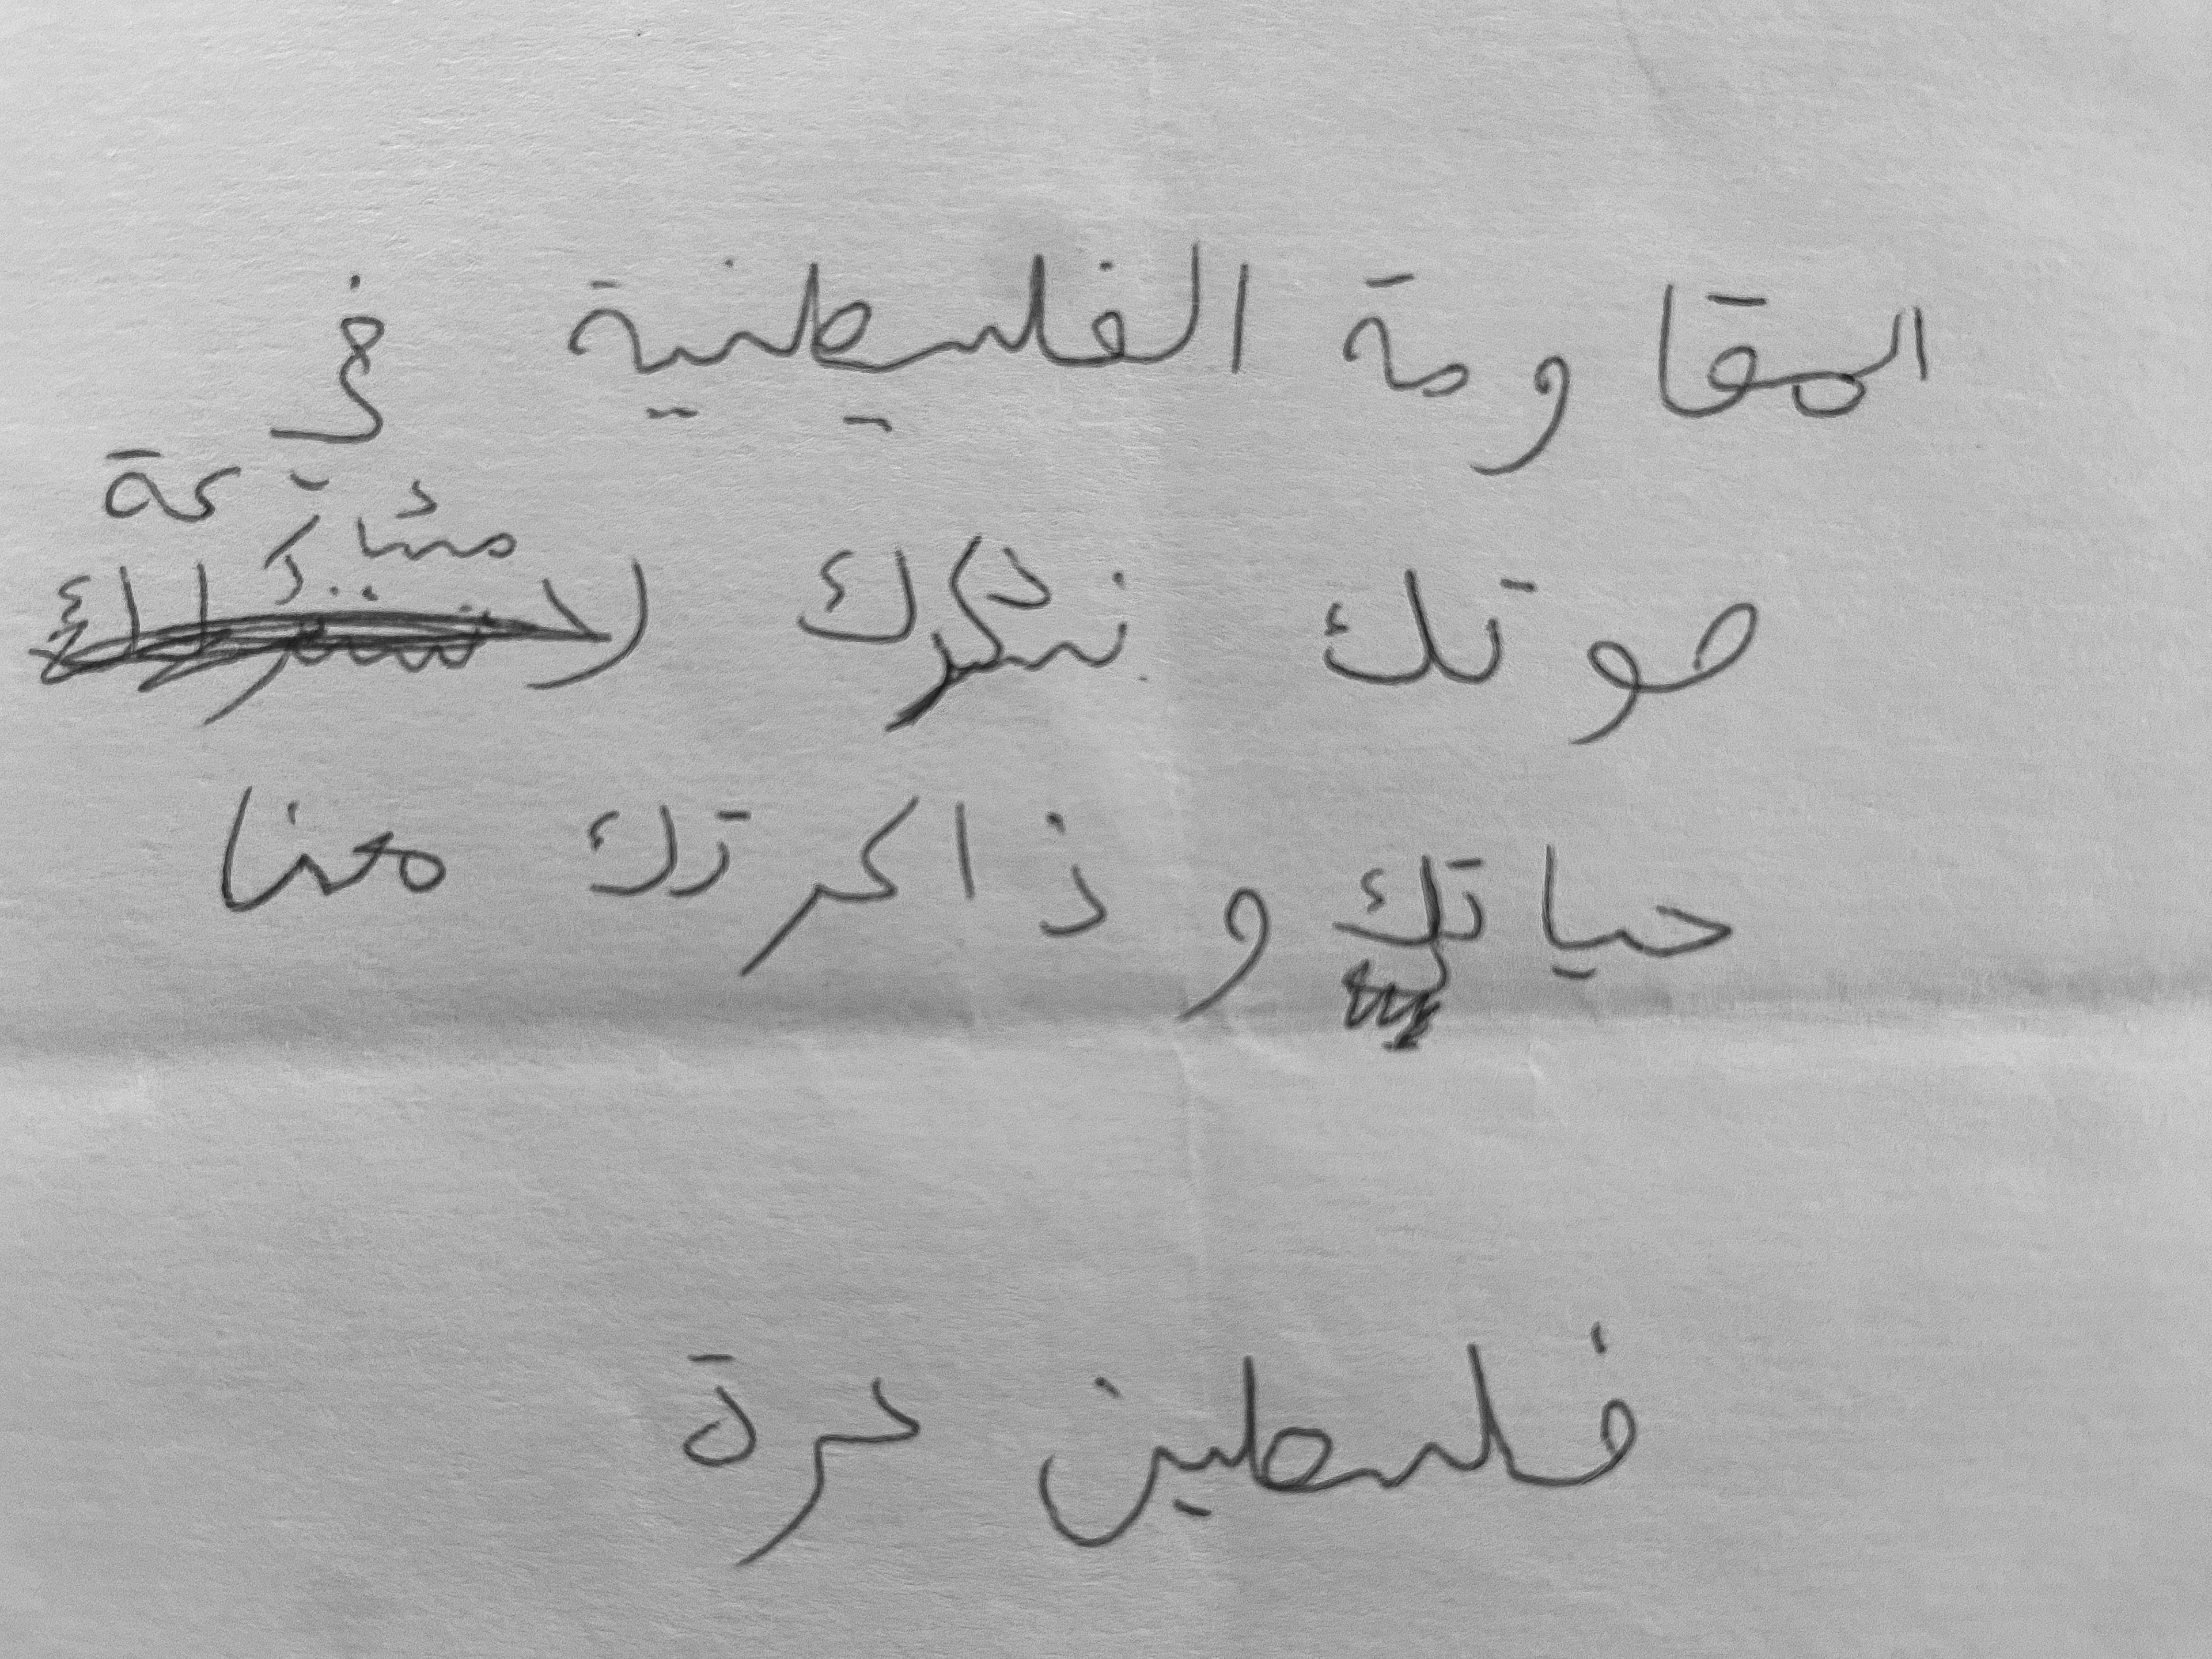 المقاومة الفليسطنية في
صوتك نشكرك لا مشاركة
حياتك و ذاكرتك معنا
فلسطين حرة